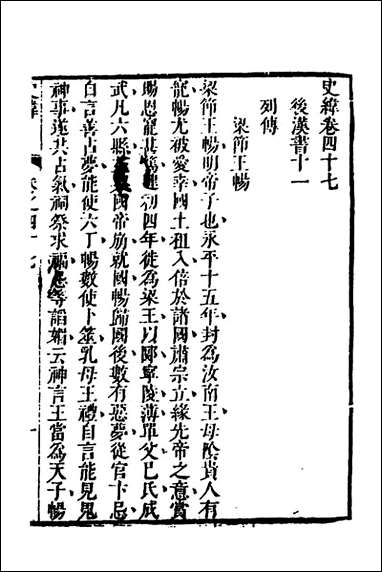 史緯卷四十七
後漢書十一
列傳
梁節王暢
梁節王暢明帝子也永平十五年封為汝南王母陰貴人有
寵暢尤被愛幸國土租入倍於諸國肅宗立緣先帝之意賞
賜恩寵甚篤建初四年徙為梁王以郾寧陵薄單父巳氏成
武凡六縣益國帝崩就國暢歸國後數有惡夢從官卞忌
自言善占夢能使六丁暢數使卜筮乳母王禮自言能見鬼
神事遂共占氣祠祭求福忌等諂媚云神言王當為天子暢
史緯
卷之四十七
一